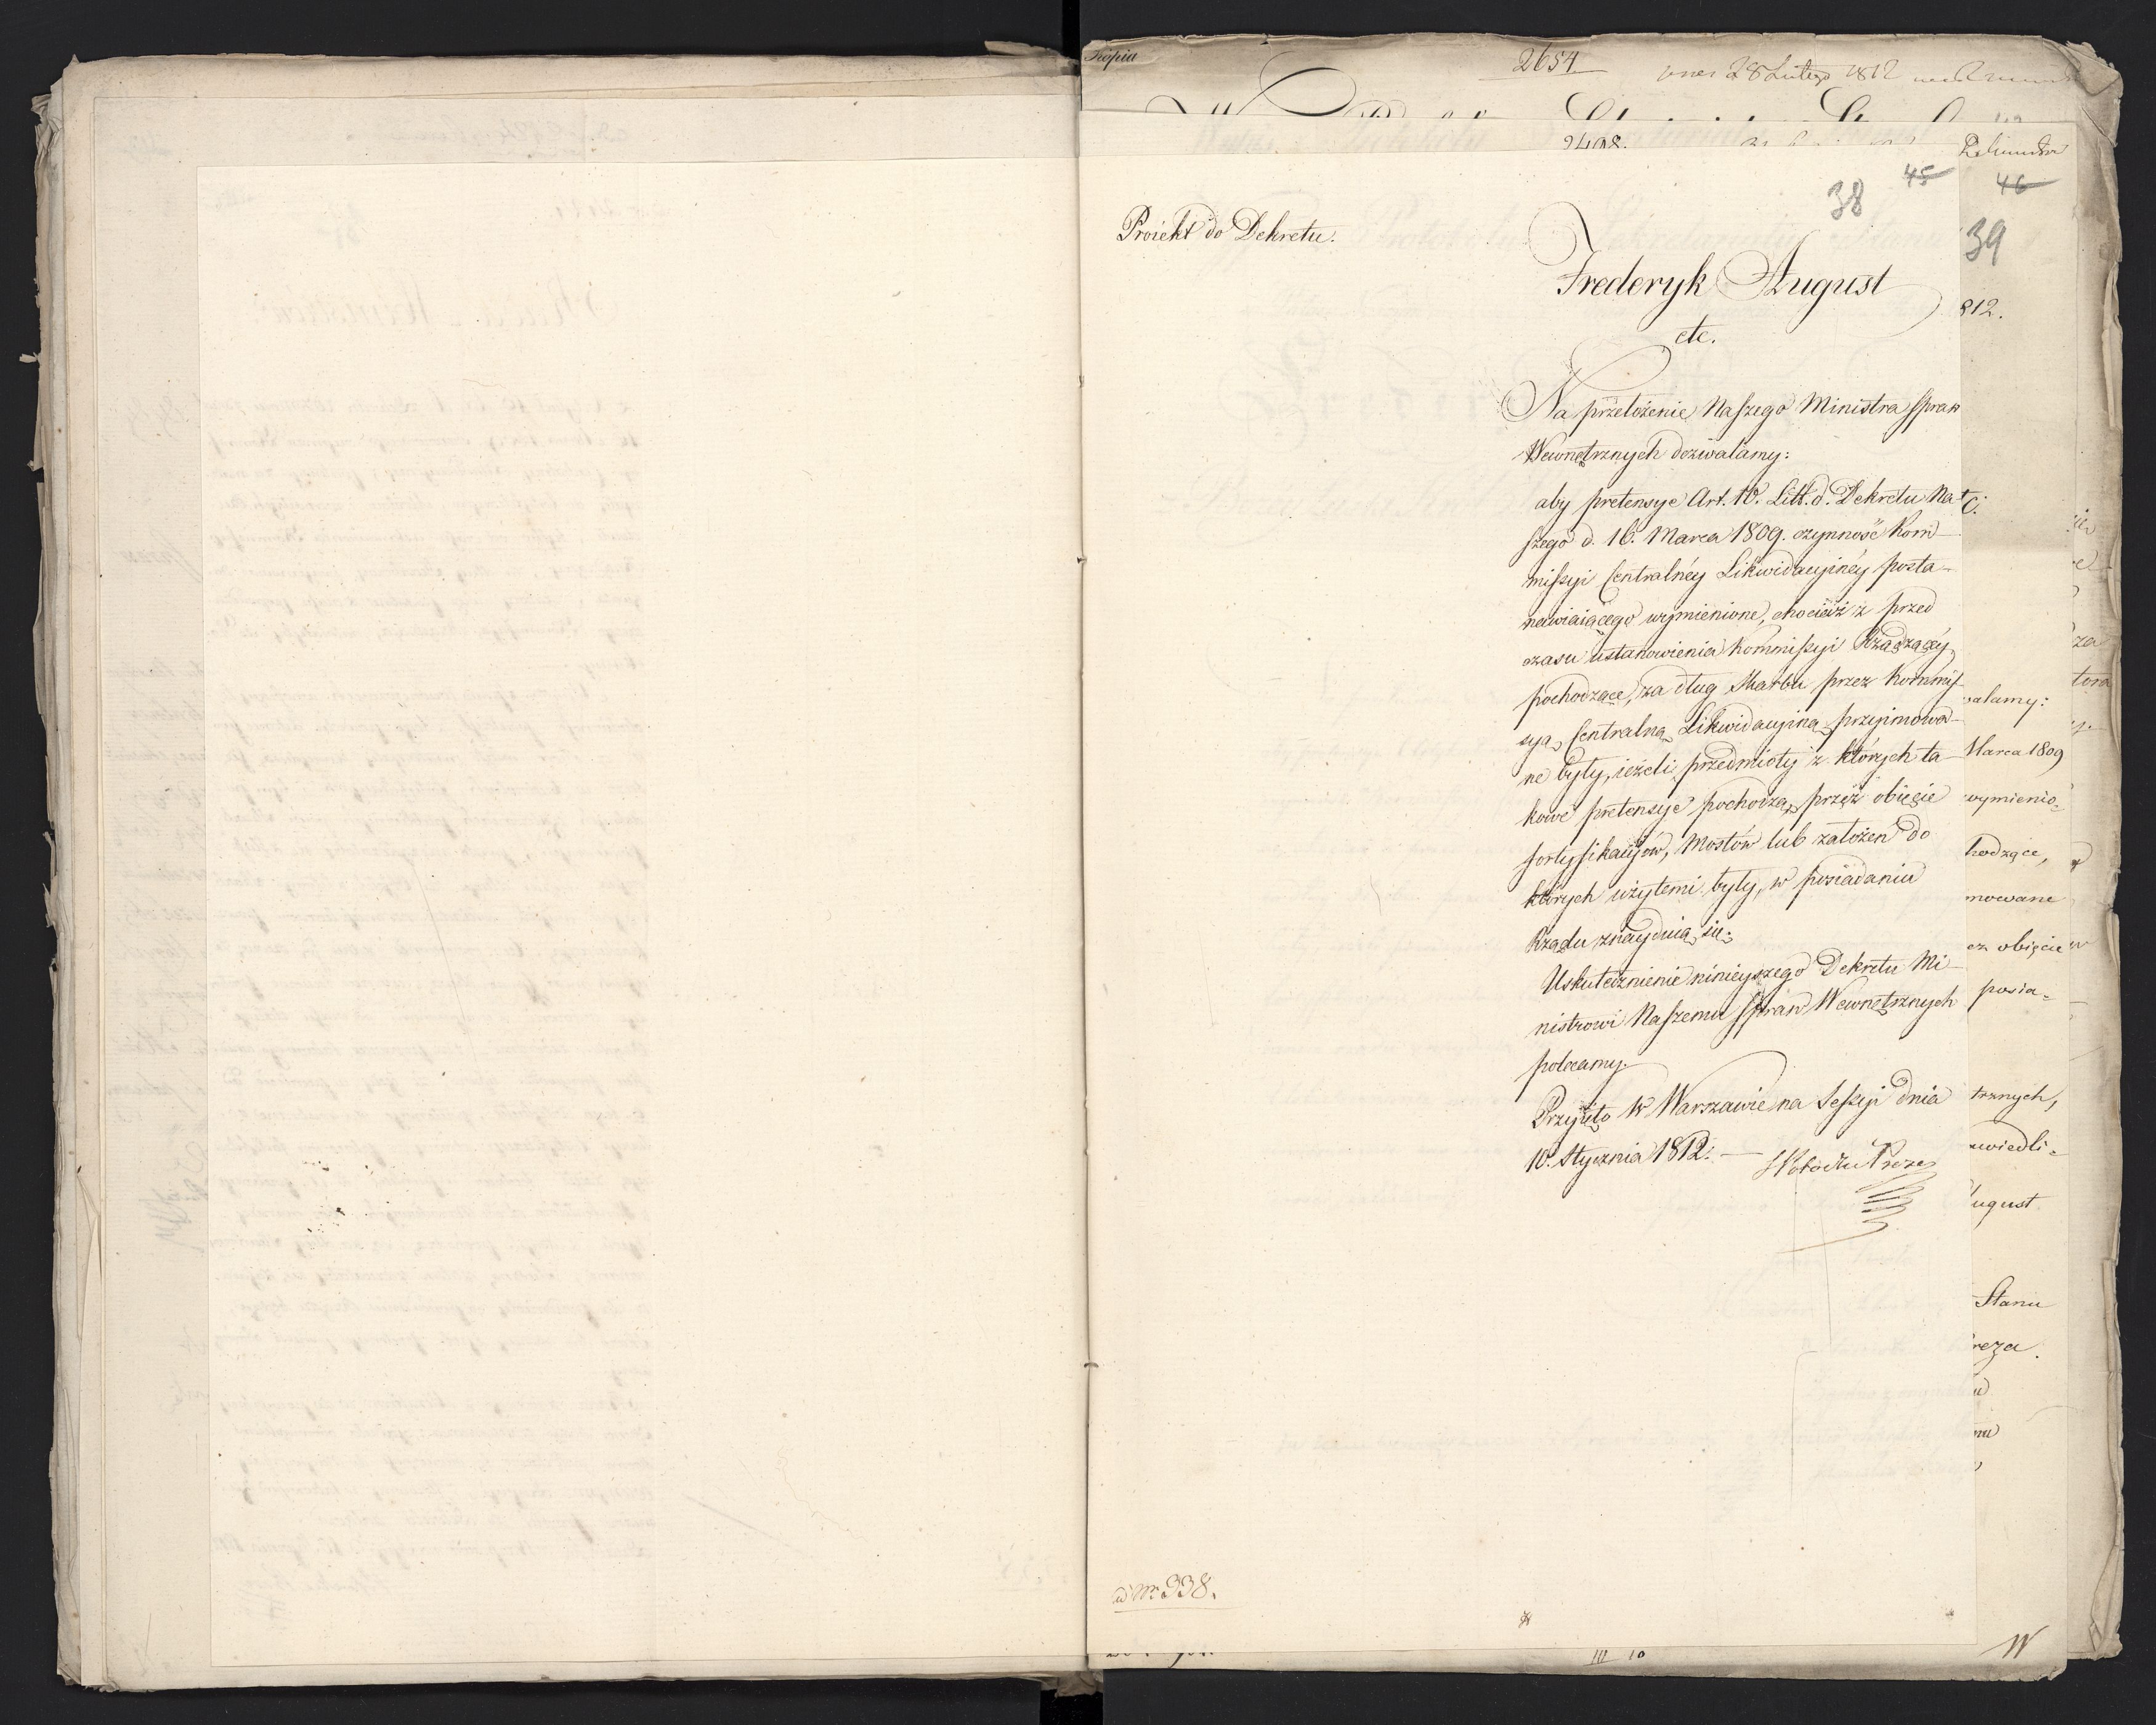 Kopia
2654
28 Lutego 1812
2498.
45
38
46
39
Proiekt do Dekretu.
Frederyk August
etc.
812.
Na przełożenie Naszego Ministra Spraw
Wewnętrznych dozwalamy:
aby pretensye Art. 10. Litt. d. Dekretu Na-
szego d. 16. Marca 1809. czynność Kom-
missyi Centralnéy Likwidacyinéy posta-
nawiaiącego wymienione, chociaż z przed
czasu ustanowienia Kommissyi Rządzącéy
pochodzące, za dług Skarbu przez Kommis-
syą Centralną Likwidacyiną przyimowa-
ne były, ieżeli przedmioty z których ta-
kowe pretensye pochodzą, przez obięcie
fortyfikacyów, Mostów lub założeń do
których użytemi były, w posiadaniu
Rządu znayduią się.
Uskutecznienie ninieyszego Dekretu Mi-
nistrowi Naszemu Spraw Wewnętrznych
polecamy.
Przyięto w Warszawie na Sessyi dnia
10. Stycznia 1812. —
walamy:
Marca 1809
wymienio-
hodzące,
mowane
ez obięcie
posia-
trznych,
wiedli-
ugust
Stanu
reza.
ad Nr. 338.